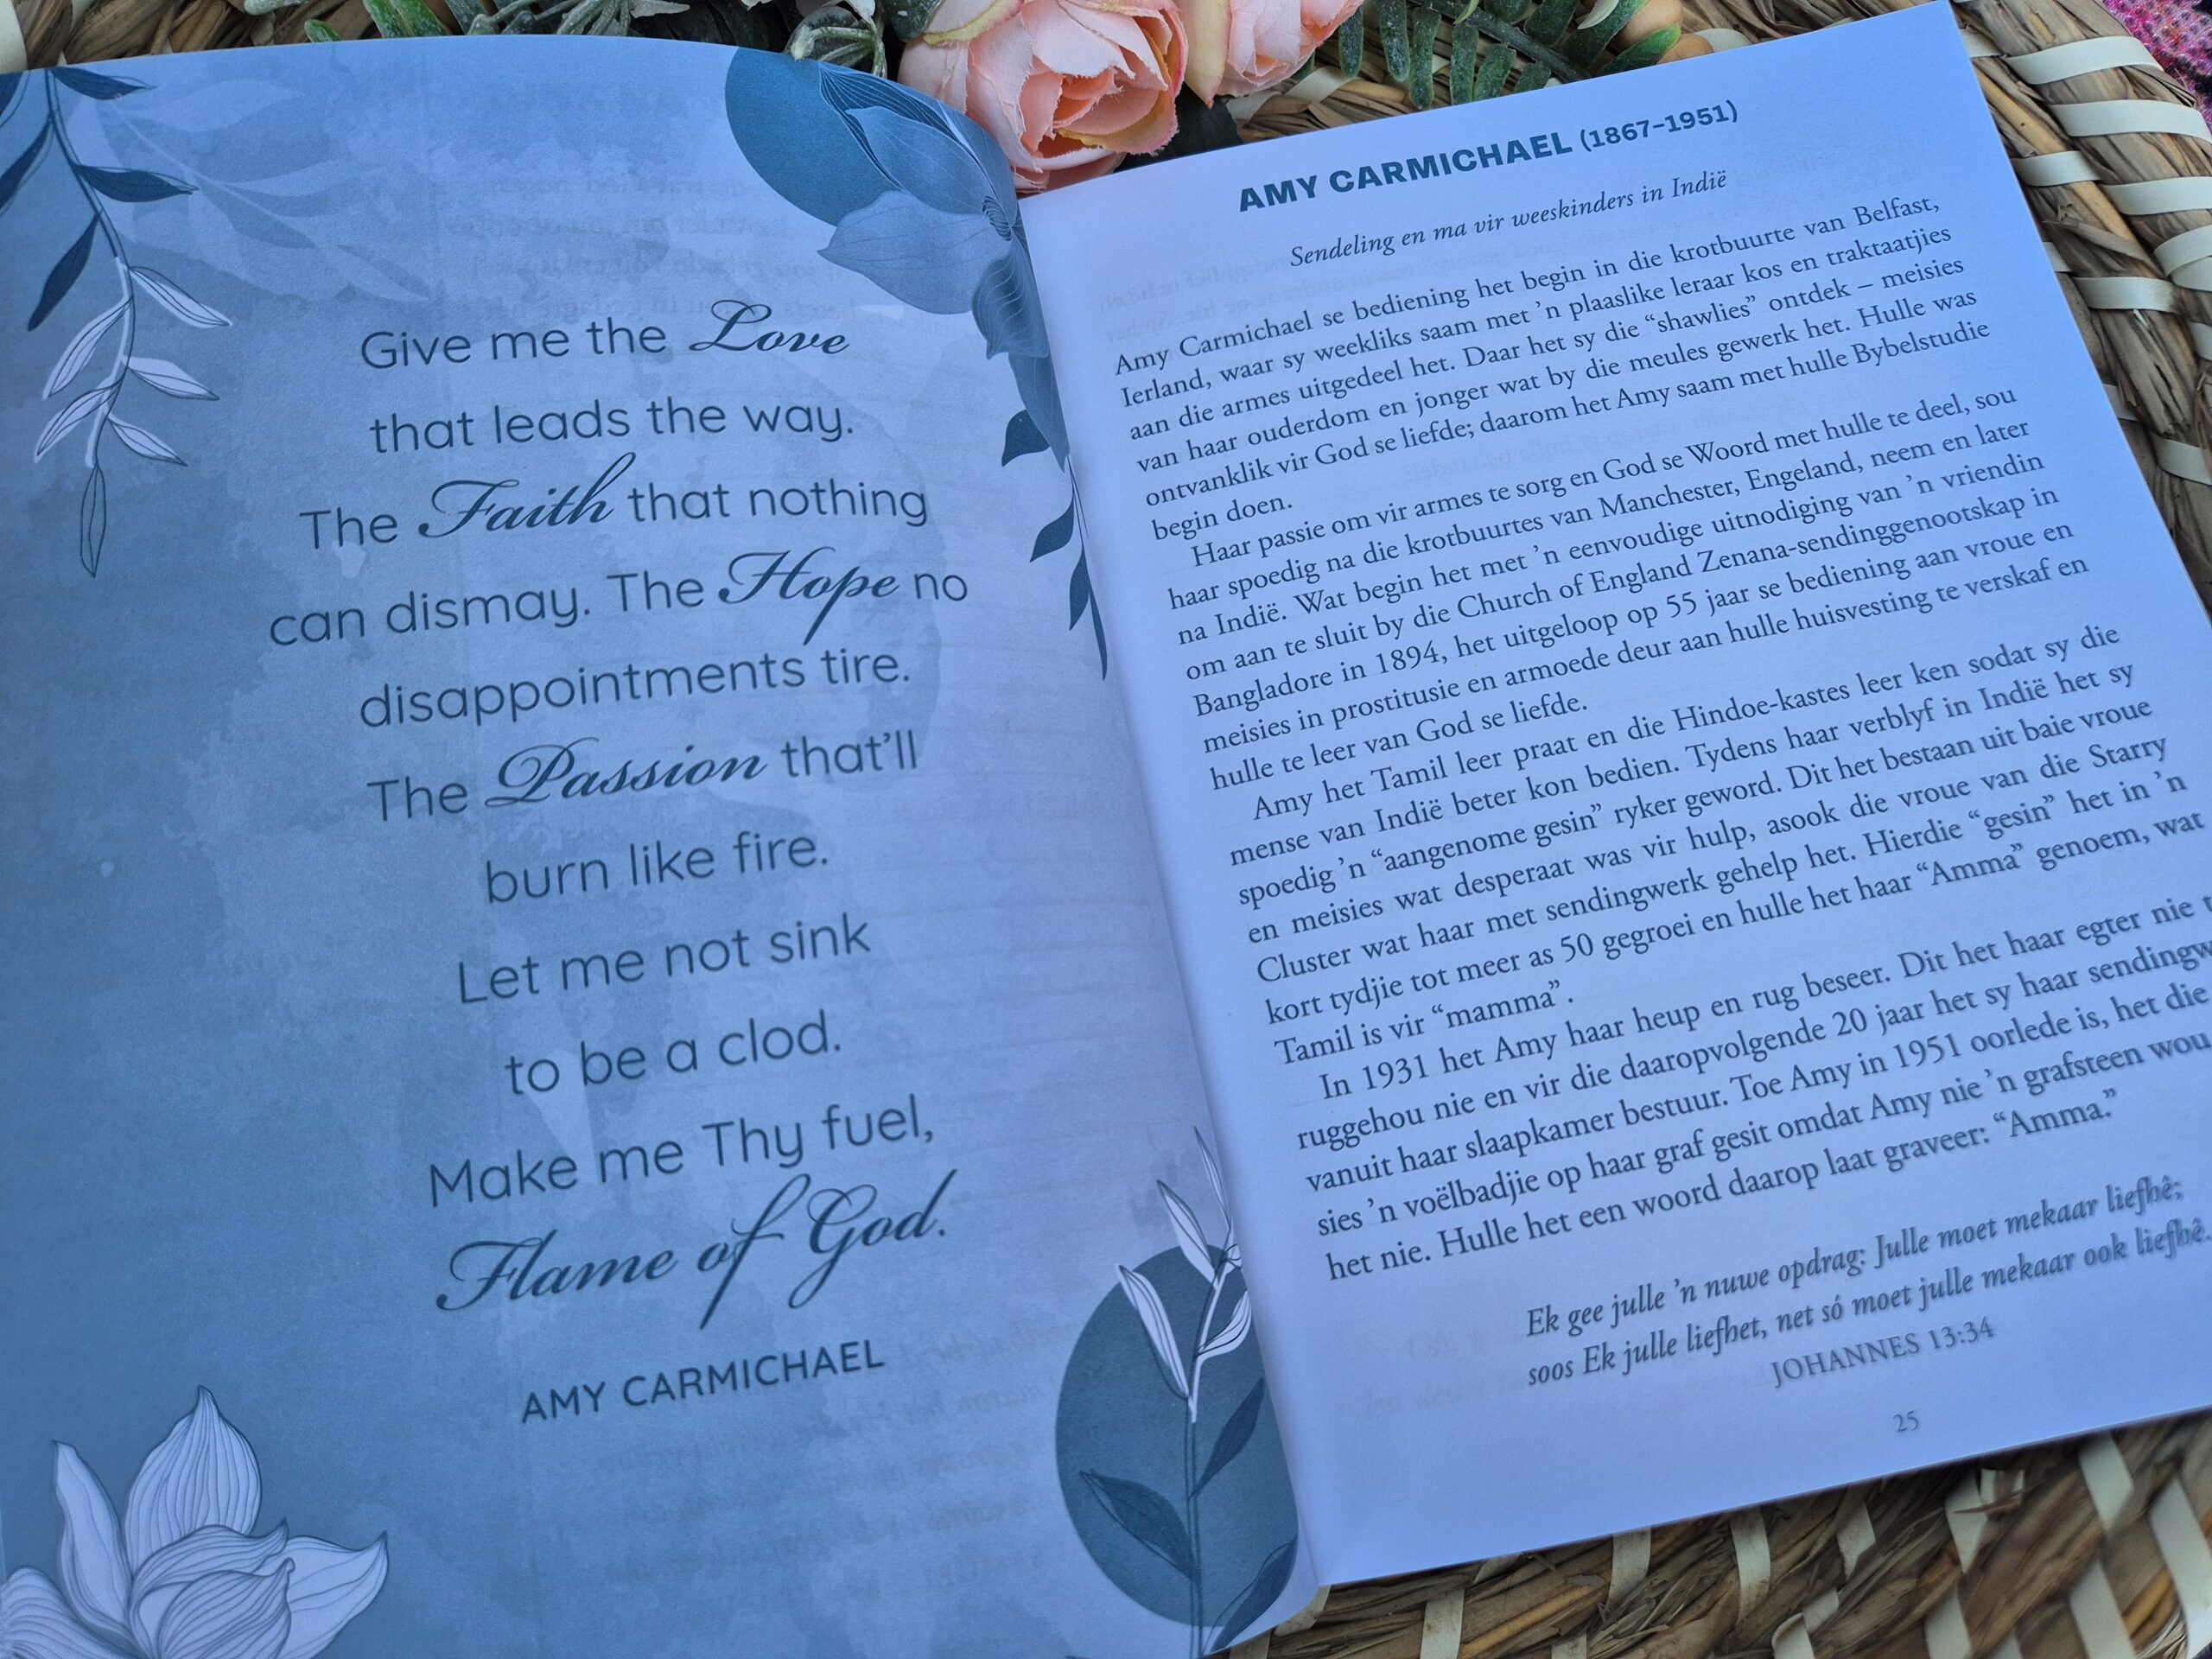 Give me the Love
that leads the way.
The Faith that nothing
can dismay. The Hope no
disappointments tire.
The Passion that'll
burn like fire.
Let me not sink
to be a clod.
Make me Thy fuel,
Flame of God.
AMY CARMICHAEL
AMY CARMICHAEL (1867–1951)
Sendeling en ma vir weeskinders in Indië
Amy Carmichael se bediening het begin in die krotbuurte van Belfast,
Ierland, waar sy weekliks saam met 'n plaaslike leraar kos en traktaatjies
aan die armes uitgedeel het. Daar het sy die “shawlies” ontdek – meisies
van haar ouderdom en jonger wat by die meules gewerk het. Hulle was
ontvanklik vir God se liefde; daarom het Amy saam met hulle Bybelstudie
begin doen.
Haar passie om vir armes te sorg en God se Woord met hulle te deel, sou
haar spoedig na die krotbuurtes van Manchester, Engeland, neem en later
na Indië. Wat begin het met 'n eenvoudige uitnodiging van 'n vriendin
om aan te sluit by die Church of England Zenana-sendinggenootskap in
Bangladore in 1894, het uitgeloop op 55 jaar se bediening aan vroue en
meisies in prostitusie en armoede deur aan hulle huisvesting te verskaf en
hulle te leer van God se liefde.
Amy het Tamil leer praat en die Hindoe-kastes leer ken sodat sy die
mense van Indië beter kon bedien. Tydens haar verblyf in Indië het sy
spoedig 'n “aangenome gesin” ryker geword. Dit het bestaan uit baie vroue
en meisies wat desperaat was vir hulp, asook die vroue van die Starry
Cluster wat haar met sendingwerk gehelp het. Hierdie “gesin” het in 'n
kort tydjie tot meer as 50 gegroei en hulle het haar “Amma” genoem, wat
Tamil is vir “mamma”.
In 1931 het Amy haar heup en rug beseer. Dit het haar egter nie
ruggehou nie en vir die daaropvolgende 20 jaar het sy haar
vanuit haar slaapkamer bestuur. Toe Amy in 1951 oorlede is, het die
sies 'n voëlbadjie op haar graf gesit omdat Amy nie 'n grafsteen wou
het nie. Hulle het een woord daarop laat graveer: “Amma.”
Ek gee julle 'n nuwe opdrag: Julle moet mekaar liefhê;
soos Ek julle liefhet, net só moet julle mekaar ook liefhê.
JOHANNES 13:34
25